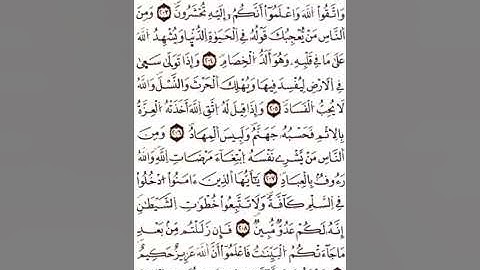 وَاتَّقُوا اللَّهَ وَاعْلَمُوا أَنَّكُمُ إِلَيْهِ تُحْشَرُونَ ٢٠٣ وَمِنَ
النَّاسِ مَنْ يُعْجِبُكَ قَوْلُهُ فِي الْحَيَوٰةِ الدُّنْيَا وَيُشْهِدُ اللَّهَ
عَلَىٰ مَا فِي قَلْبِهِ وَهُوَ أَلَدُّ الْخِصَامِ ٢٠٤ وَإِذَا تَوَلَّىٰ سَعَىٰ
فِي الْأَرْضِ لِيُفْسِدَ فِيهَا وَيُهْلِكَ الْحَرْثَ وَالنَّسْلَ وَاللَّهُ
لَا يُحِبُّ الْفَسَادَ ٢٠٥ وَإِذَا قِيلَ لَهُ اتَّقِ اللَّهَ أَخَذَتْهُ الْعِزَّةُ
بِالْإِثْمِ فَحَسْبُهُ جَهَنَّمُ وَلَبِيسَ الْمِهَادُ ٢٠٦ وَمِنَ
النَّاسِ مَنْ يَشْرِي نَفْسَهُ ابْتِغَاءَ مَرْضَاتِ اللَّهِ وَاللَّهُ
رَءُوفٌ بِالْعِبَادِ ٢٠٧ يَٰأَيُّهَا الَّذِينَ ءَامَنُوا ادْخُلُوا
فِي السَّلْمِ كَافَّةً وَلَا تَتَّبِعُوا خُطْوَٰتِ الشَّيْطَٰنِ
إِنَّهُ لَكُمْ عَدُوٌّ مُبِينٌ ٢٠٨ فَإِن زَلَلْتُم مِّنْ بَعْدِ
مَا جَاءَتْكُمُ الْبَيِّنَٰتُ فَاعْلَمُوا أَنَّ اللَّهَ عَزِيزٌ حَكِيمٌ